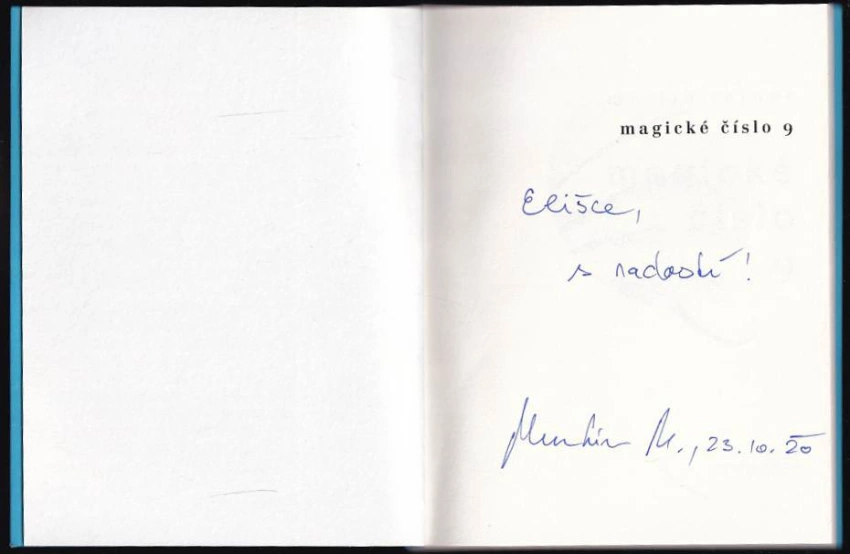 magické číslo 9
Elišce,
s radostí!
M., 23. 10. 20